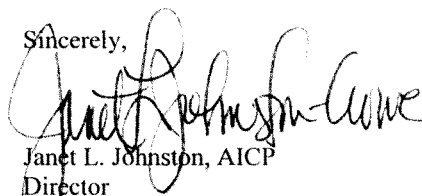 Sincerely,
Janet L Johnston-Crowe
Janet L. Johnston, AICP
Director